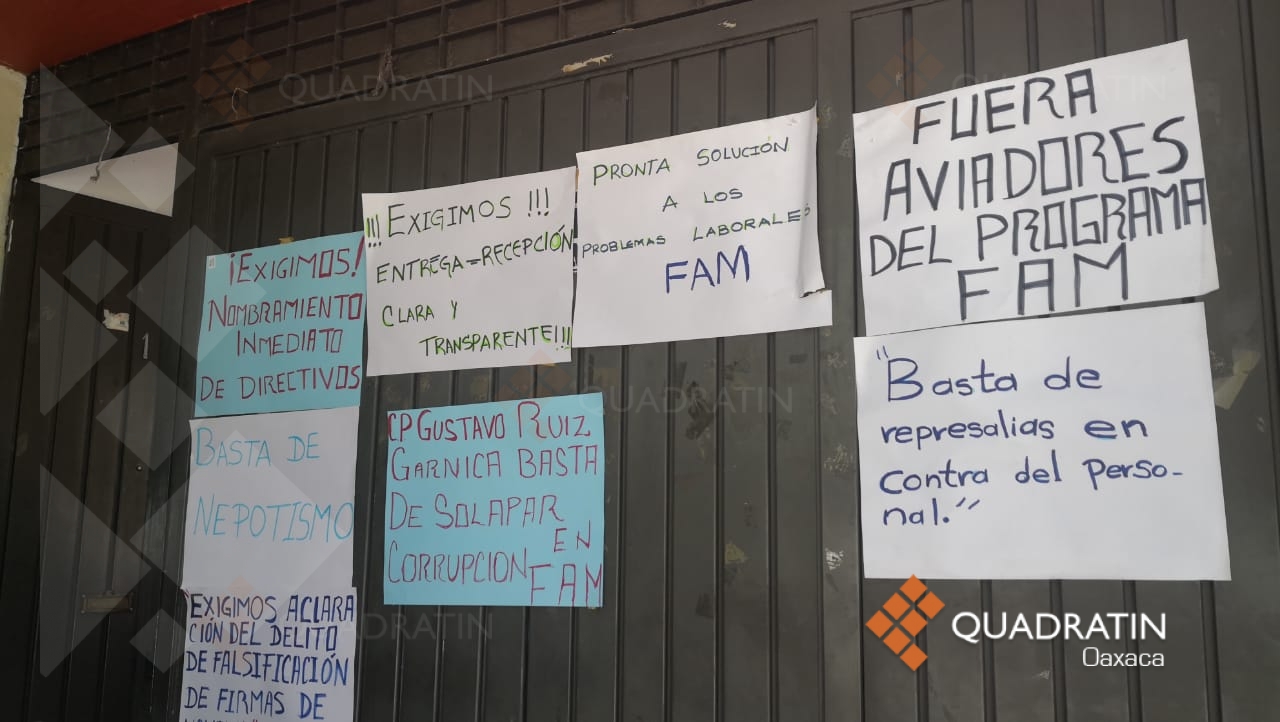 ¡EXIGIMOS!
NOMBRAMIENTO
INMEDIATO
DE DIRECTIVOS
!!!EXIGIMOS !!!
ENTREGA=RECEPCIÓN
CLARA Y
TRANSPARENTE!!!
PRONTA SOLUCIÓN
A LOS
PROBLEMAS LABORALES
FAM
FUERA
AVIADORES
DEL PROGRAMA
FAM
BASTA DE
NEPOTISMO
CP GUSTAVO RUIZ
GARNICA BASTA
DE SOLAPAR
CORRUPCION EN
FAM
"Basta de
represalias en
contra del perso-
nal."
EXIGIMOS ACLARA
CIÓN DEL DELITO
DE FALSIFICACIÓN
DE FIRMAS DE
QUADRATIN
Oaxaca
QUADRATIN
QUADRATIN
QUADRATIN